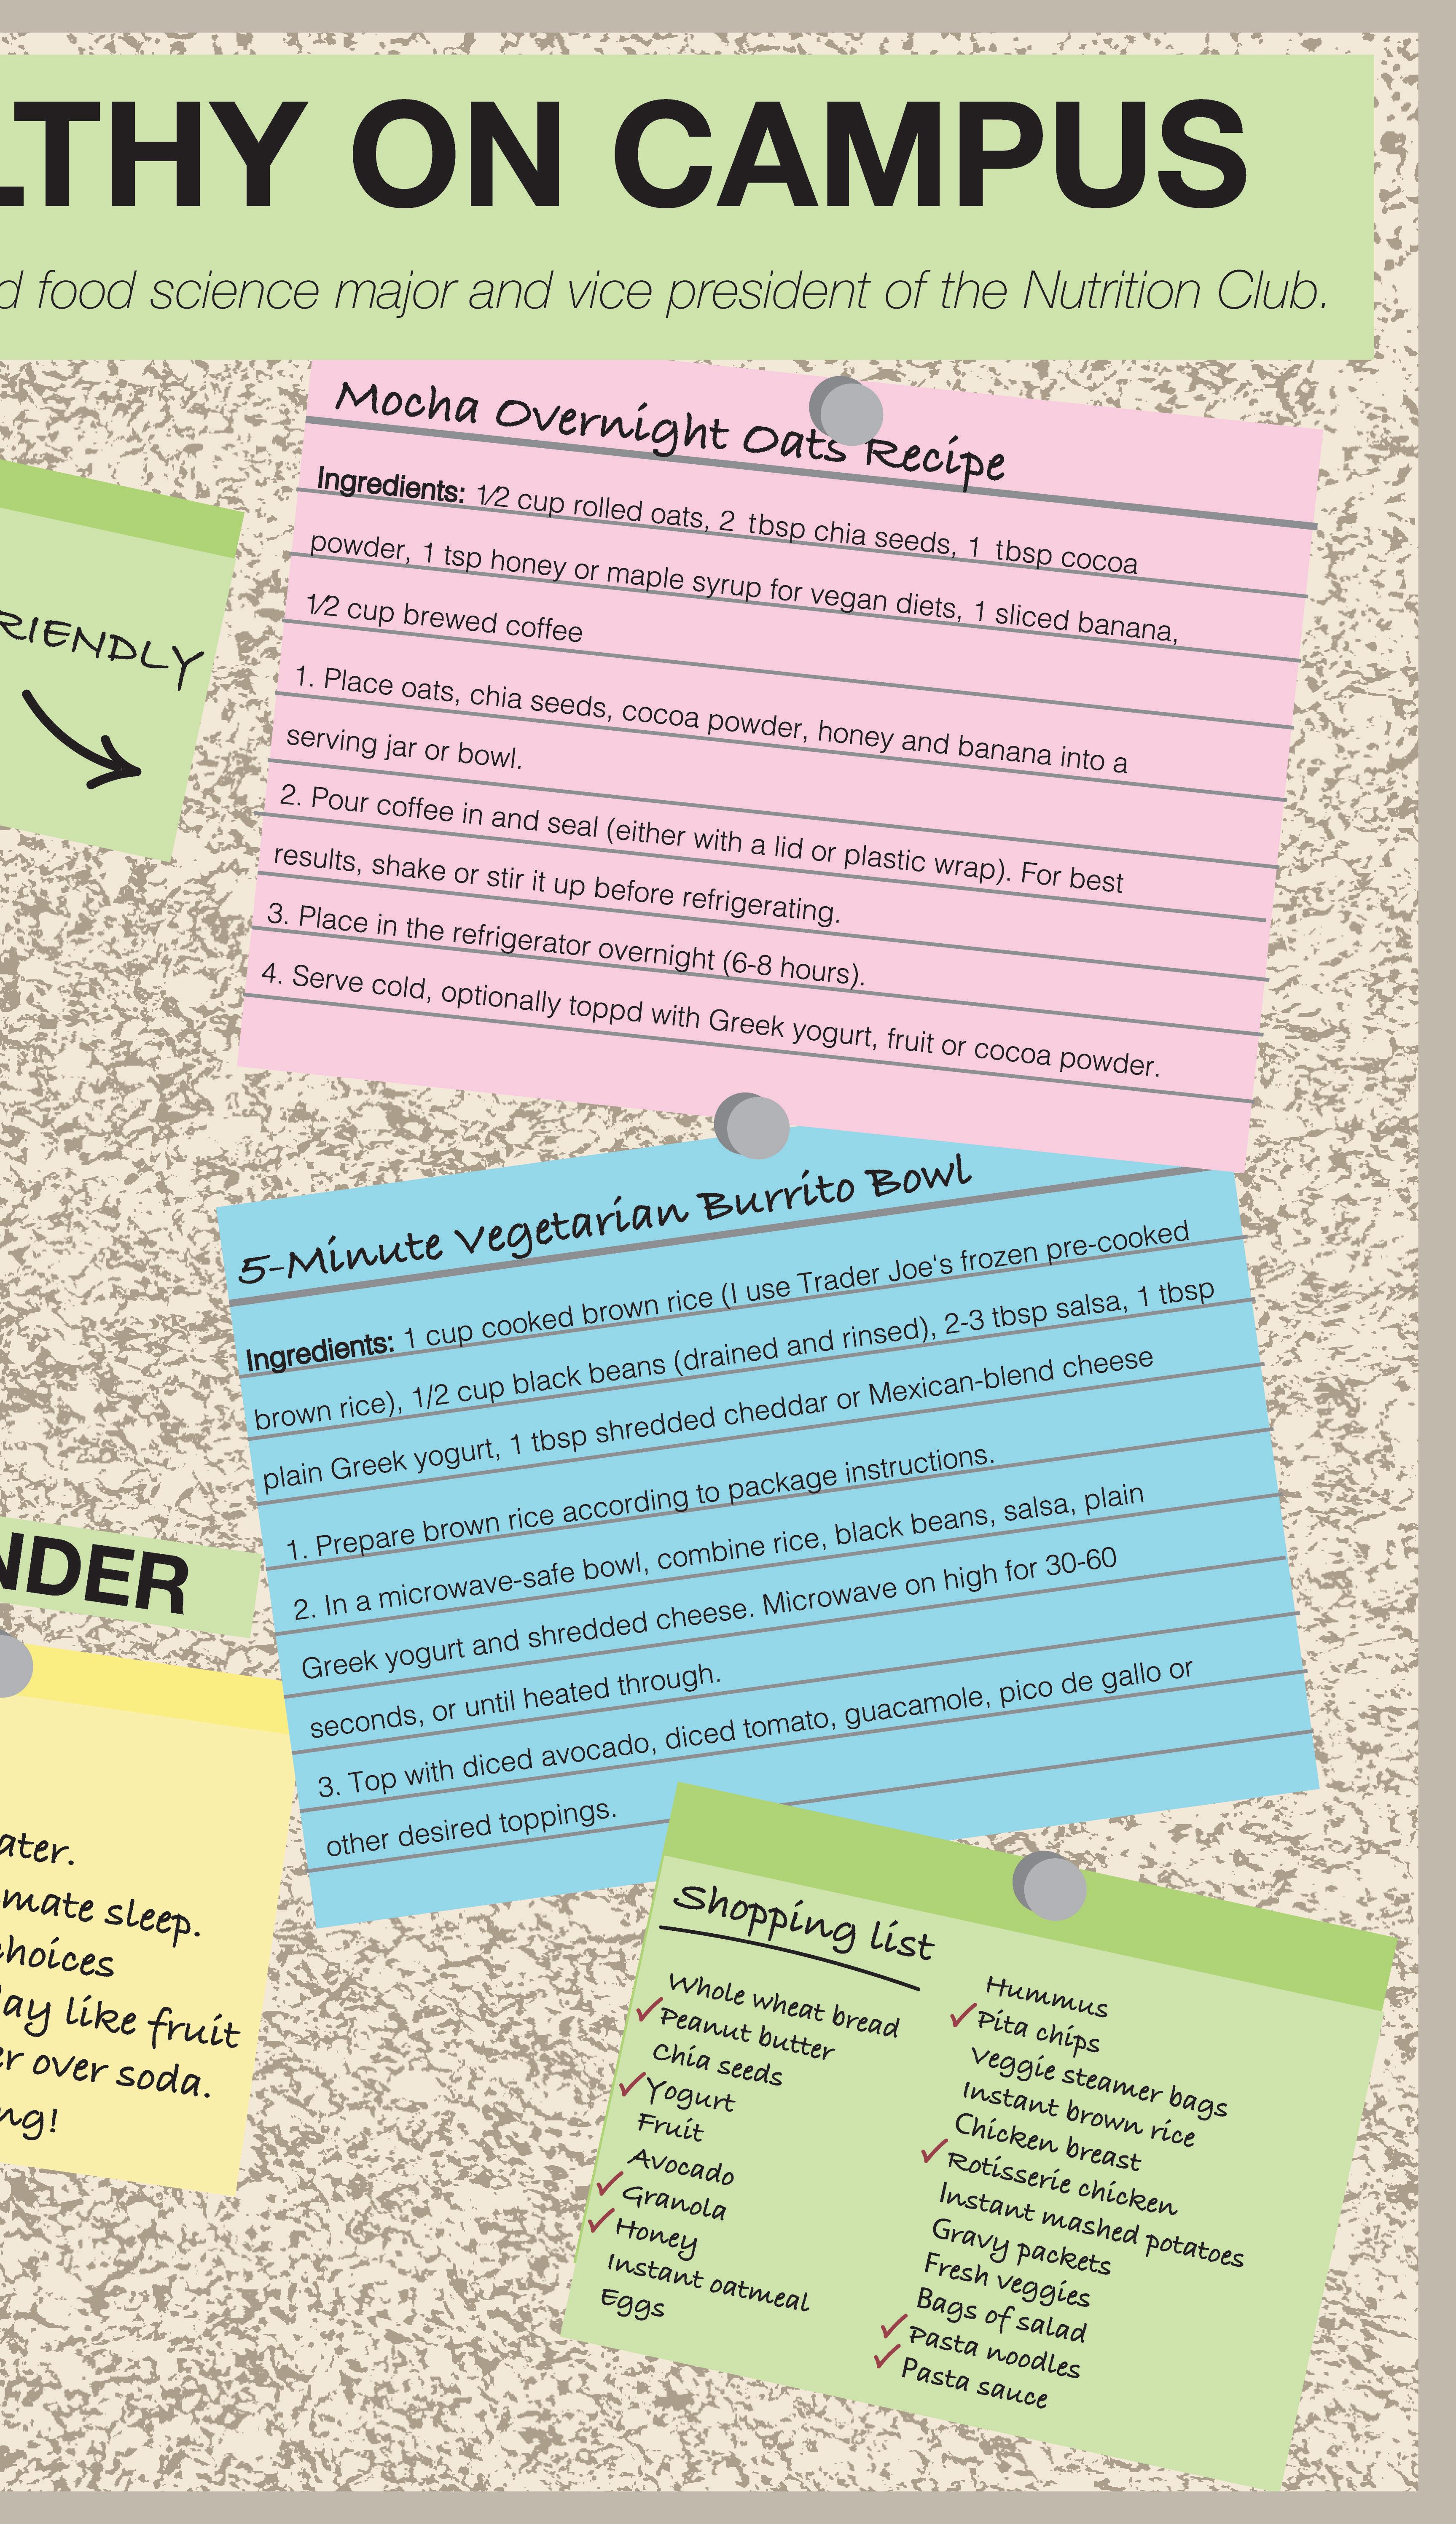 LTHY ON CAMPUS
d food science major and vice president of the Nutrition Club.
RIENDLY
Mocha Overnight Oats Recipe
Ingredients: 1/2 cup rolled oats, 2 tbsp chia seeds, 1 tbsp cocoa
powder, 1 tsp honey or maple syrup for vegan diets, 1 sliced banana,
1/2 cup brewed coffee
1. Place oats, chia seeds, cocoa powder, honey and banana into a
serving jar or bowl.
2. Pour coffee in and seal (either with a lid or plastic wrap). For best
results, shake or stir it up before refrigerating.
3. Place in the refrigerator overnight (6-8 hours).
4. Serve cold, optionally toppd with Greek yogurt, fruit or cocoa powder.
5-Minute Vegetarian Burrito Bowl
Ingredients: 1 cup cooked brown rice (I use Trader Joe's frozen pre-cooked
brown rice), 1/2 cup black beans (drained and rinsed), 2-3 tbsp salsa, 1 tbsp
plain Greek yogurt, 1 tbsp shredded cheddar or Mexican-blend cheese
1. Prepare brown rice according to package instructions.
2. In a microwave-safe bowl, combine rice, black beans, salsa, plain
Greek yogurt and shredded cheese. Microwave on high for 30-60
seconds, or until heated through.
3. Top with diced avocado, diced tomato, guacamole, pico de gallo or
other desired toppings.
NDER
ater.
mate sleep.
hoices
lay like fruit
er over soda.
ng!
Shopping list
Whole wheat bread
Peanut butter
Chia seeds
Yogurt
Fruit
Avocado
Granola
Honey
Instant oatmeal
Eggs
Hummus
Pita chips
Veggie steamer bags
Instant brown rice
Chicken breast
Rotisserie chicken
Instant mashed potatoes
Gravy packets
Fresh veggies
Bags of salad
Pasta noodles
Pasta sauce